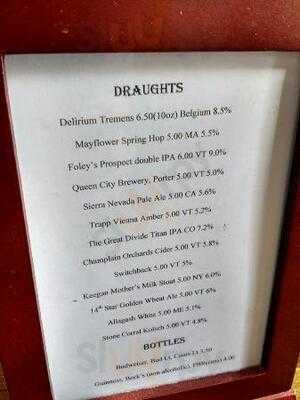 DRAUGHTS
Delirium Tremens 6.50(10oz) Belgium 8.5%
Mayflower Spring Hop 5.00 MA 5.5%
Foley's Prospect double IPA 6.00 VT 9.0%
Queen City Brewery, Porter 5.00 VT 5.0%
Sierra Nevada Pale Ale 5.00 CA 5.6%
Trapp Vienna Amber 5.00 VT 5.2%
The Great Divide Titan IPA CO 7.2%
Champlain Orchards Cider 5.00 VT 5.8%
Switchback 5.00 VT 5%
Keegan Mother's Milk Stout 5.00 NY 6.0%
14th Star Golden Wheat Ale 5.00 VT 6%
Allagash White 5.00 ME 5.1%
Stone Corral Kolsch 5.00 VT 4.8%
BOTTLES
Budweiser, Bud Lt, Coors Lt 3.50
Guinness, Beck's (non alcoholic), 4.00